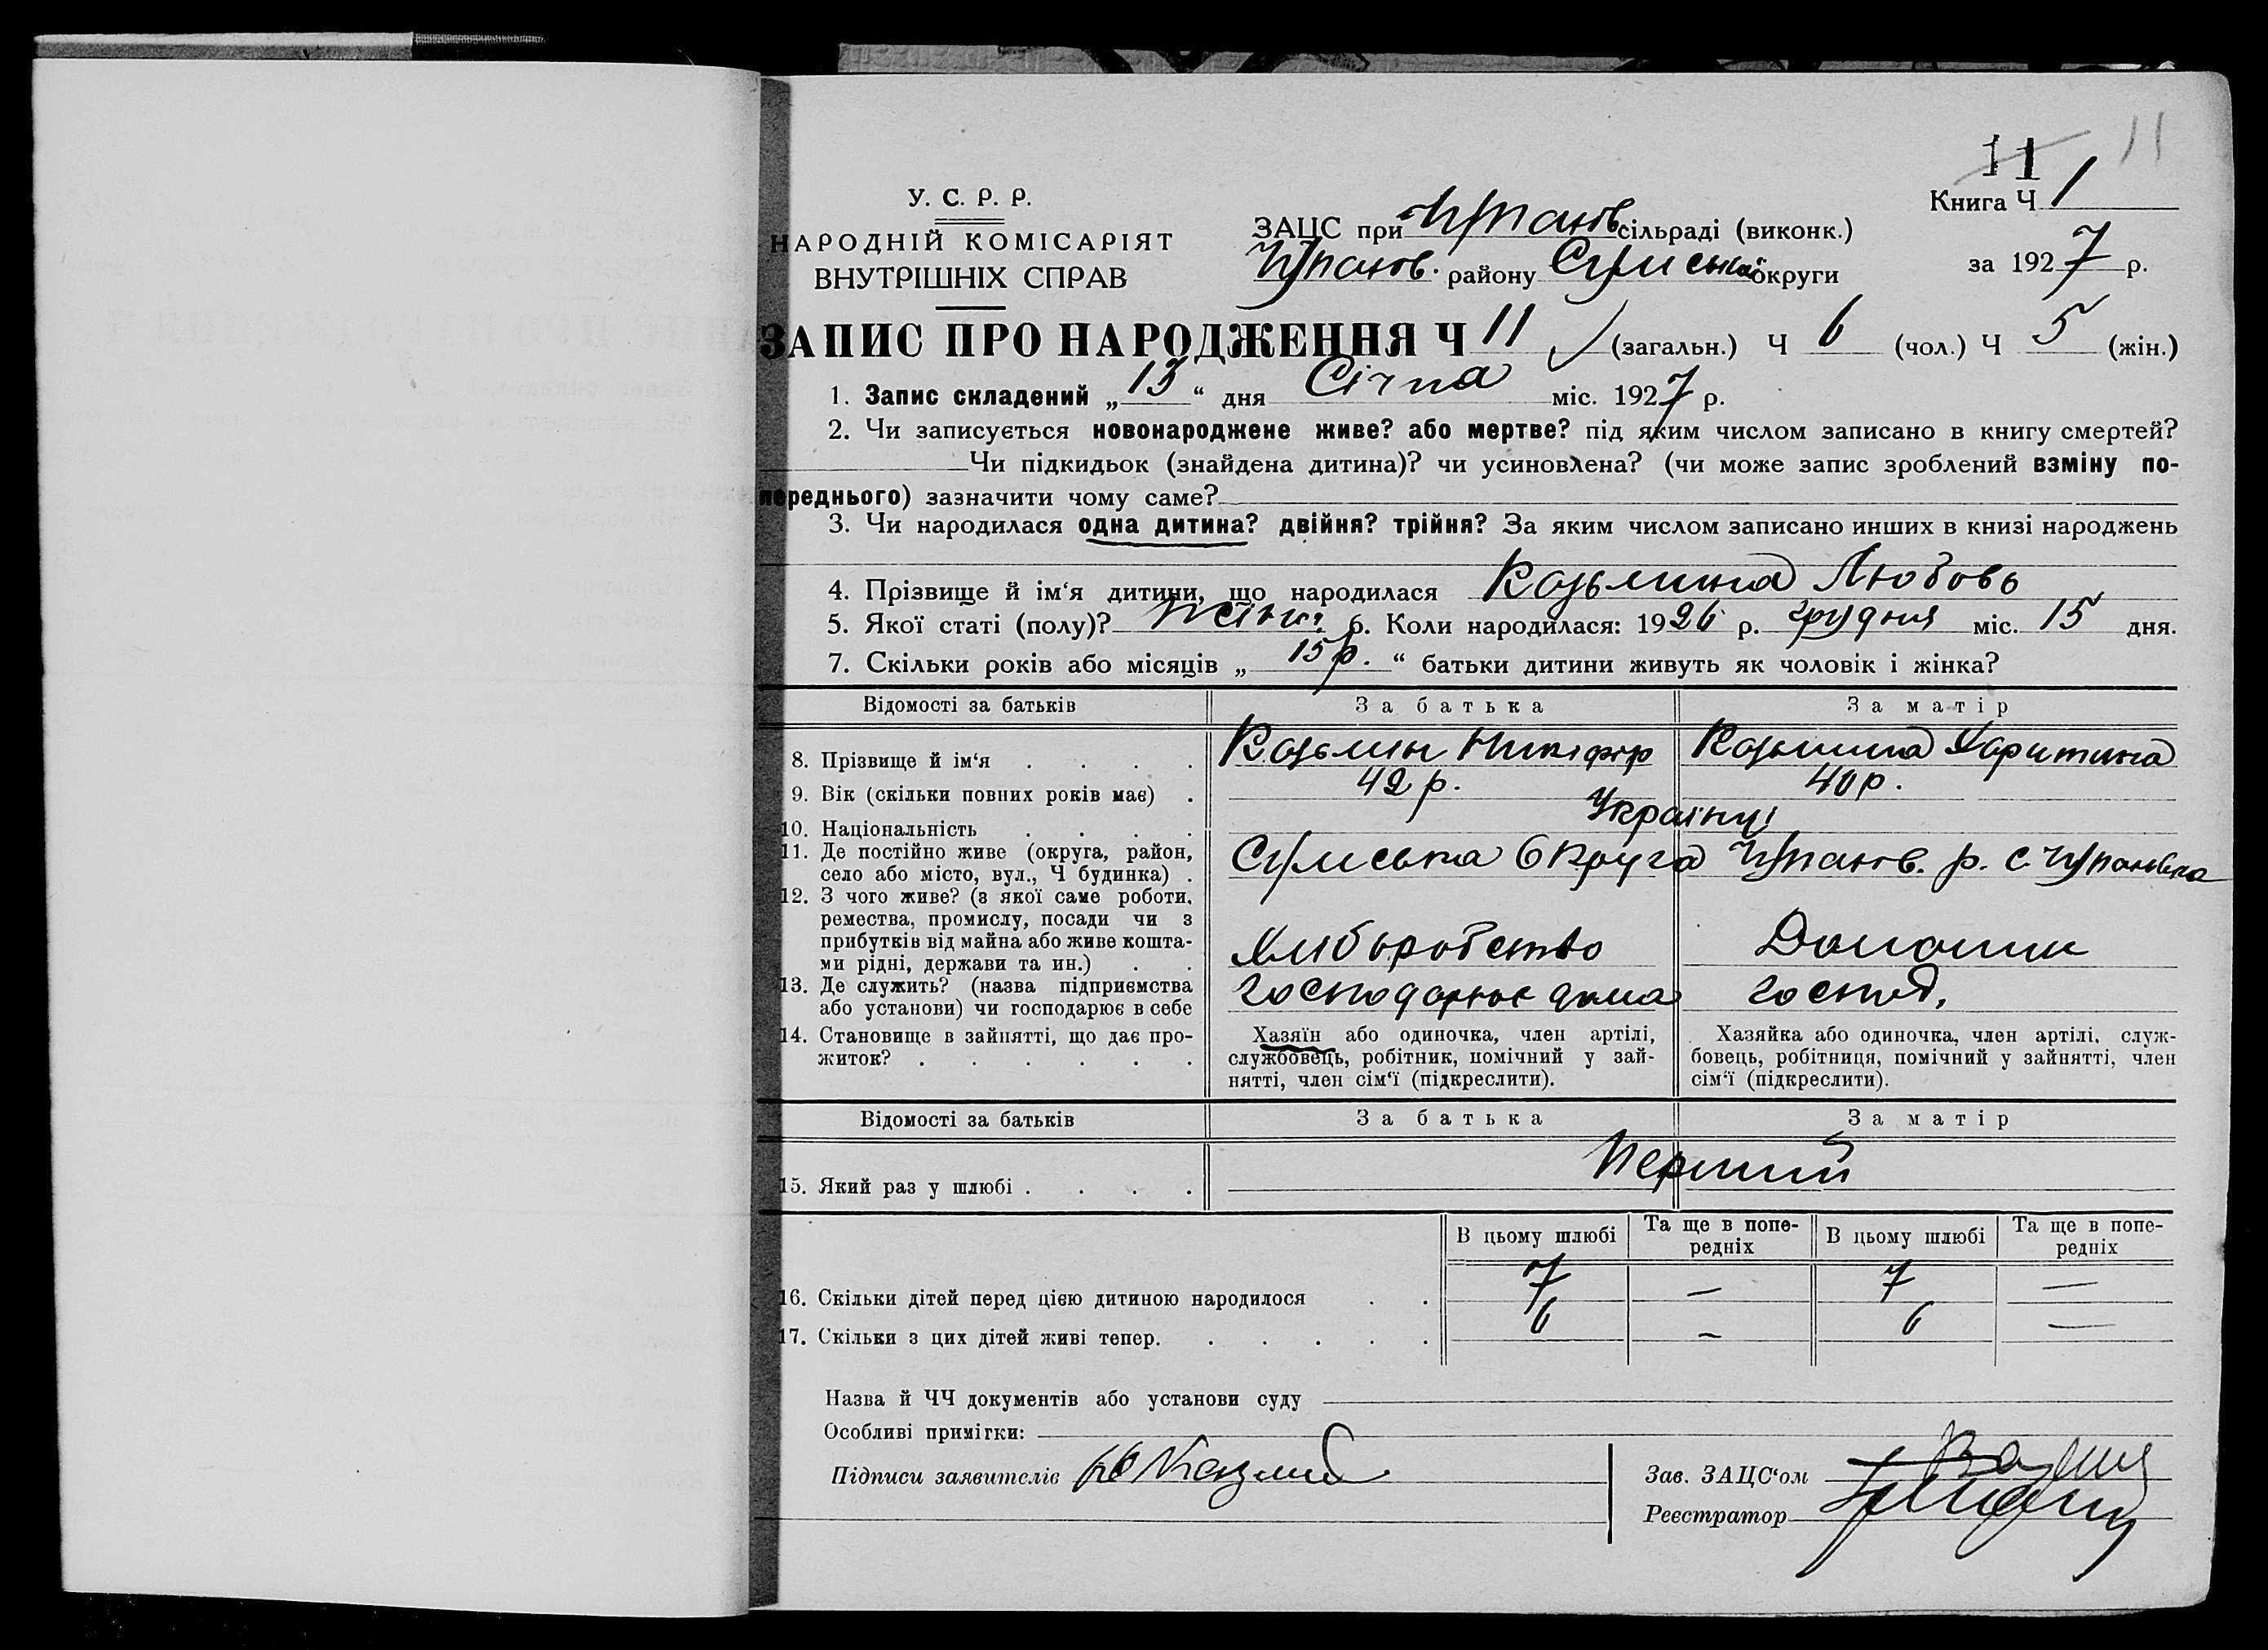 11 11
У. С. Р. Р.
НАРОДНІЙ КОМІСАРІЯТ
ВНУТРІШНІХ СПРАВ
ЗАЦС при сільраді (виконк.)
району Сумської округи
Книга Ч 1
за 1927 р.
ЗАПИС ПРО НАРОДЖЕННЯ Ч 11 (загальн.) Ч 6 (чол.) Ч 5 (жін.)
1. Запис складений „13“ дня Січня міс. 1927 р.
2. Чи записується новонароджене живе? або мертве? під яким числом записано в книгу смертей?
Чи підкидьок (знайдена дитина)? чи усиновлена? (чи може запис зроблений взміну по-
переднього) зазначити чому саме?
3. Чи народилася одна дитина? двійня? трійня? За яким числом записано инших в книзі народжень
4. Прізвище й ім‘я дитини, що народилася Козьмина Любовь
5. Якої статі (полу)? жіно. 6. Коли народилася: 1926 р. грудня міс. 15 дня.
7. Скільки років або місяців „15 р.“ батьки дитини живуть як чоловік і жінка?
Відомості за батьків За батька За матір
8. Прізвище й ім‘я . . . . Козьмин Никіфор Козьмина Харитина
9. Вік (скільки повних років має) . 42 р. 40 р.
10. Національність . . . . Українці
11. Де постійно живе (округа, район,
село або місто, вул., Ч будинка) . Сумська Округа р. с.
12. З чого живе? (з якої саме роботи,
ремества, промислу, посади чи з
прибутків від майна або живе кошта-
ми рідні, держави та ин.) . . Хліборобство Домашнє
13. Де служить? (назва підприємства
або установи) чи господарює в себе господарює дома господ.
14. Становище в зайнятті, що дає про-
житок? . . . . . .
Хазяїн або одиночка, член артілі,
службовець, робітник, помічний у зай-
нятті, член сім‘ї (підкреслити).
Хазяйка або одиночка, член артілі, служ-
бовець, робітниця, помічний у зайнятті, член
сім‘ї (підкреслити).
Відомості за батьків За батька За матір
15. Який раз у шлюбі . . . . Перший
В цьому шлюбі Та ще в попе-
редніх В цьому шлюбі Та ще в попе-
редніх
16. Скільки дітей перед цією дитиною народилося . . 7 — 7 —
17. Скільки з цих дітей живі тепер. . . . . . 6 — 6 —
Назва й ЧЧ документів або установи суду
Особливі примігки:
Підписи заявителів
Зав. ЗАЦС‘ом
Реєстратор